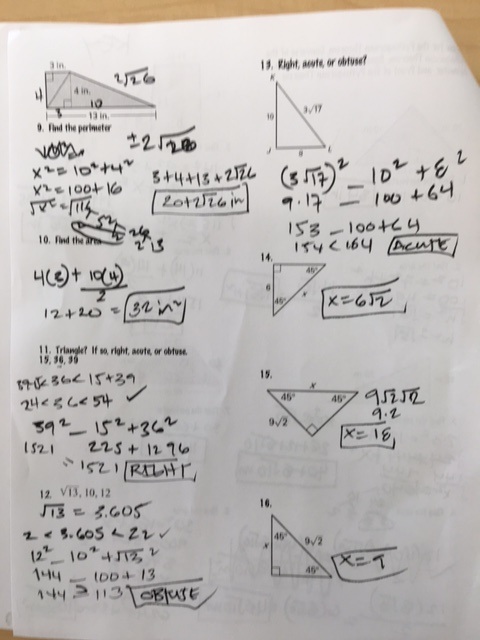 3 in.
2√26
4
4 in.
10
3
13 in.
9. Find the perimeter
±2√26
x² = 10² + 4²
x² = 100 + 16
3+4+13+2√26
20+2√26 in
10. Find the area
4(3) + 10(4)
2
12 + 20 = 32 in²
11. Triangle? If so, right, acute, or obtuse.
15, 36, 39
39-15 < 36 < 15+39
24 < 36 < 54 ✓
39² _ 15² + 36²
1521 225 + 1296
1521 RIGHT
12. √13, 10, 12
√13 = 3.605
2 < 3.605 < 22 ✓
12² _ 10² + √13²
144 _ 100 + 13
144 > 113 OBTUSE
13. Right, acute, or obtuse?
K
10
3√17
J
L
(3√17)² = 10² + 8²
9·17 = 100 + 64
153 _ 100+64
154 < 164 ACUTE
14.
45°
6
x
45°
x=6√2
15.
x
45° 45°
9√2
9√2√2
9·2
x=18
16.
45°
x
9√2
45°
x=9